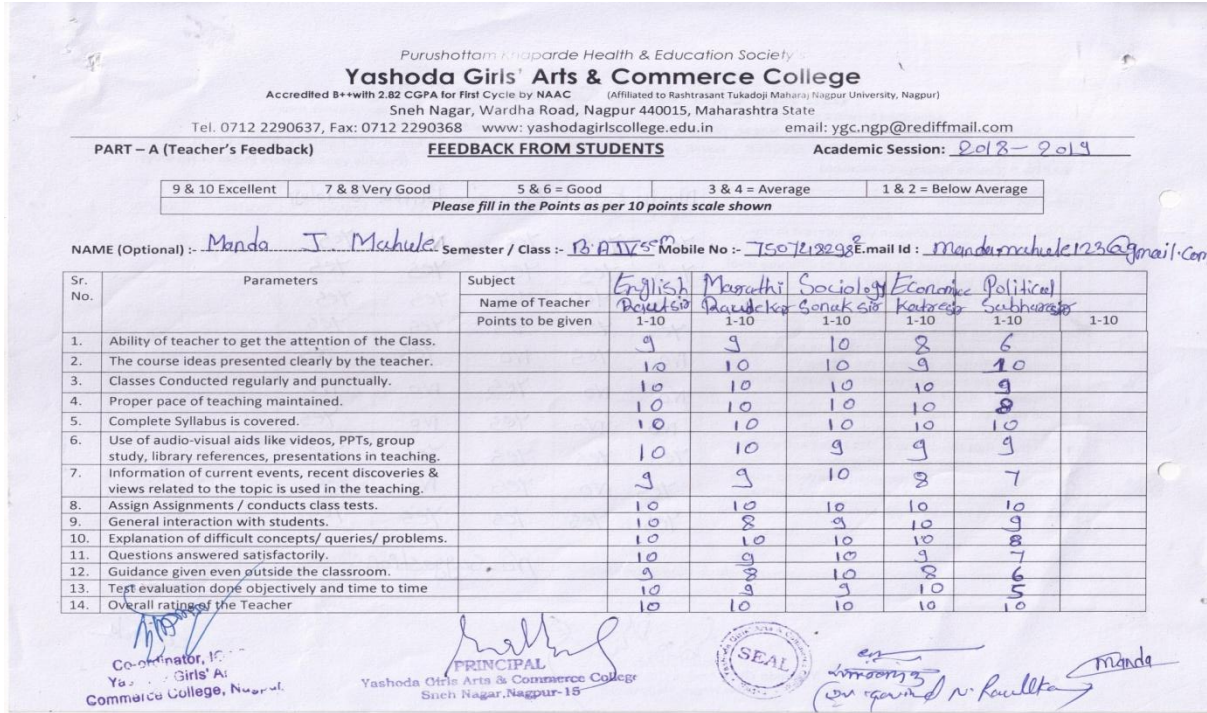 Purushottam Khaparde Health & Education Society's
Yashoda Girls' Arts & Commerce College
Accredited B++with 2.82 CGPA for First Cycle by NAAC (Affiliated to Rashtrasant Tukadoji Maharaj Nagpur University, Nagpur)
Sneh Nagar, Wardha Road, Nagpur 440015, Maharashtra State
Tel. 0712 2290637, Fax: 0712 2290368 www: yashodagirlscollege.edu.in email: ygc.ngp@rediffmail.com
PART – A (Teacher's Feedback) FEEDBACK FROM STUDENTS Academic Session: 2018-2019
9 & 10 Excellent 7 & 8 Very Good 5 & 6 = Good 3 & 4 = Average 1 & 2 = Below Average
Please fill in the Points as per 10 points scale shown
NAME (Optional) :- Manda J Mahule Semester / Class :- B.A IV sem Mobile No :- E.mail Id : mandamahule123@gmail.com
Sr. No. Parameters Subject English Marathi Sociology Economic Political
Name of Teacher Rautsir Sonak sir
Points to be given 1-10 1-10 1-10 1-10 1-10 1-10
1. Ability of teacher to get the attention of the Class. 9 9 10 8 6
2. The course ideas presented clearly by the teacher. 10 10 10 9 10
3. Classes Conducted regularly and punctually. 10 10 10 10 9
4. Proper pace of teaching maintained. 10 10 10 10 8
5. Complete Syllabus is covered. 10 10 10 10 10
6. Use of audio-visual aids like videos, PPTs, group
study, library references, presentations in teaching. 10 10 9 9 9
7. Information of current events, recent discoveries &
views related to the topic is used in the teaching. 9 9 10 8 7
8. Assign Assignments / conducts class tests. 10 10 10 10 10
9. General interaction with students. 10 8 9 10 9
10. Explanation of difficult concepts/ queries/ problems. 10 10 10 10 8
11. Questions answered satisfactorily. 10 9 10 9 7
12. Guidance given even outside the classroom. 9 8 10 8 6
13. Test evaluation done objectively and time to time 10 9 9 10 5
14. Overall rating of the Teacher 10 10 10 10 10
Co-ordinator,
Girls'
Commerce College, Nagpur
PRINCIPAL
Yashoda Girls Arts & Commerce College
Sneh Nagar, Nagpur-15
SEAL
Manda